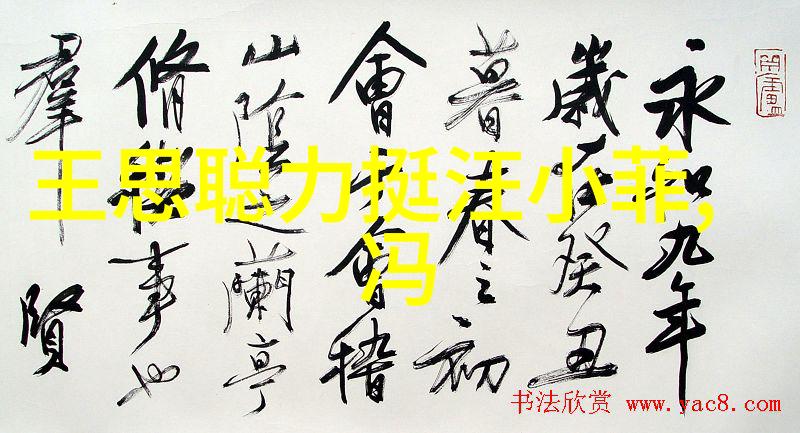 永和九年
歲在癸丑
暮春之初
會于會稽
山陰之蘭亭
脩禊事也
羣賢
王思聪力挺汪小菲,
冯
书法欣赏 www.yac8.com